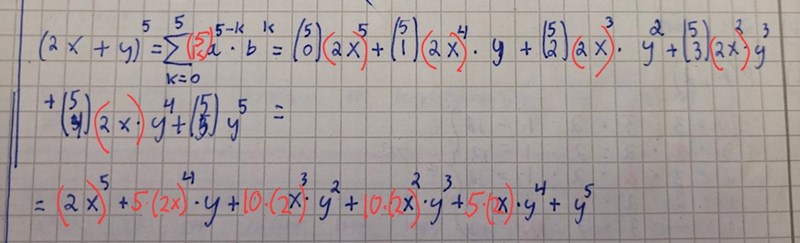 (2x + y)⁵ = ∑_{k=0}^{5} (5 k) a^{5-k} · b^k = (5 0) (2x)⁵ + (5 1) (2x)⁴ · y + (5 2) (2x)³ · y² + (5 3) (2x)² · y³
+ (5 4) (2x) · y⁴ + (5 5) y⁵ =
= (2x)⁵ + 5·(2x)⁴ · y + 10·(2x)³ · y² + 10·(2x)² · y³ + 5·(2x) · y⁴ + y⁵